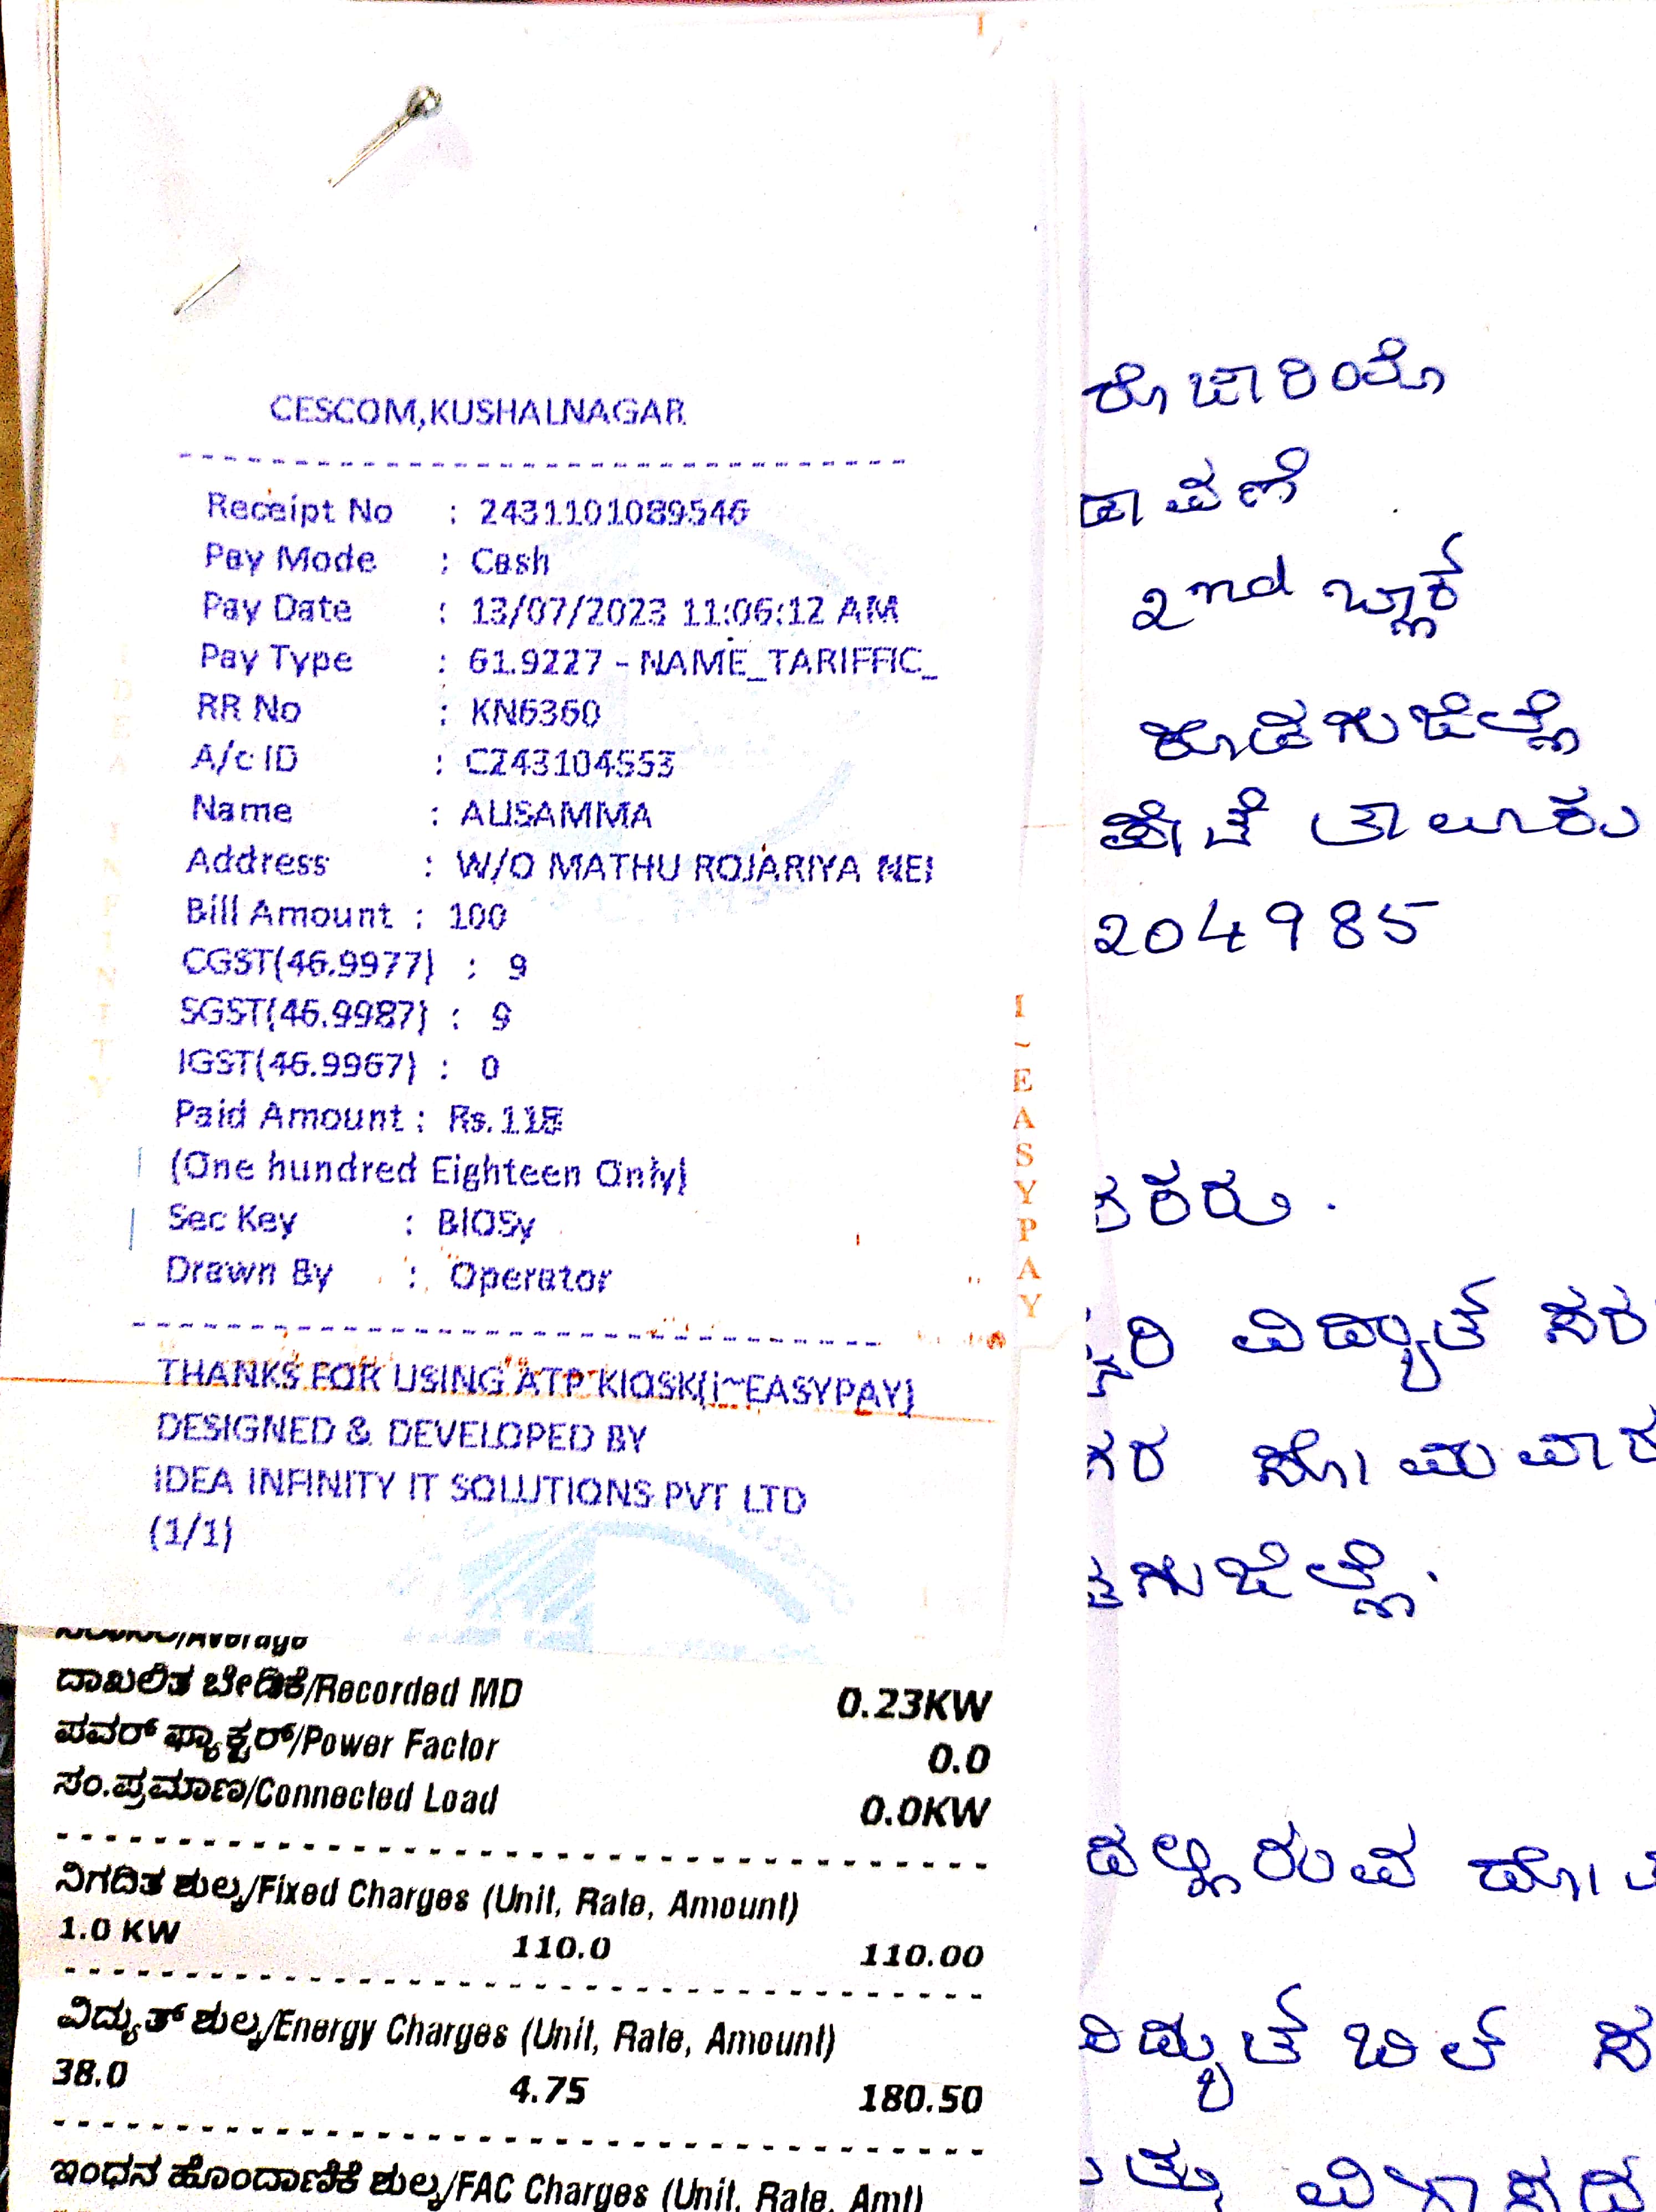 CESCOM,KUSHALNAGAR
Receipt No : 2431101089546
Pay Mode : Cash
Pay Date : 13/07/2023 11:06:12 AM
Pay Type : 61.9227 - NAME_TARIFFIC_
RR No : KN6360
A/c ID : C243104553
Name : ALISAMMA
Address : W/O MATHU ROJARIYA NEI
Bill Amount : 100
CGST(46.9977) : 9
SGST(46.9987) : 9
IGST(46.9967) : 0
Paid Amount : Rs.118
(One hundred Eighteen Only)
Sec Key : BIOSy
Drawn By : Operator
THANKS FOR USING ATP KIOSK(I~EASYPAY)
DESIGNED & DEVELOPED BY
IDEA INFINITY IT SOLUTIONS PVT LTD
(1/1)
I~EASYPAY
IDEA INFINITY
ದಾಖಲಿತ ಬೇಡಿಕೆ/Recorded MD 0.23KW
ಪವರ್ ಫ್ಯಾಕ್ಟರ್/Power Factor 0.0
ಸಂ.ಪ್ರಮಾಣ/Connected Load 0.0KW
ನಿಗದಿತ ಶುಲ್ಕ/Fixed Charges (Unit, Rate, Amount)
1.0 KW 110.0 110.00
ವಿದ್ಯುತ್ ಶುಲ್ಕ/Energy Charges (Unit, Rate, Amount)
38.0 4.75 180.50
ಇಂಧನ ಹೊಂದಾಣಿಕೆ ಶುಲ್ಕ/FAC Charges (Unit, Rate, Amt)
ರೊಜಾರಿಯೊ
ಡಾವಣೆ
2nd ಬ್ಲಾಕ್
ಕೊಡಗುಜಿಲ್ಲೆ
ಪೇಟೆ ತಾಲೂಕು
204985
ಕರು.
ರಿ ವಿದ್ಯುತ್ ಸರ
ಗರ ಸೋಮವಾರ
ಗುಜಿಲ್ಲೆ.
ದಲ್ಲಿರುವ ಹೋ
ವಿದ್ಯುತ್ ಬಿಲ್ ಸ